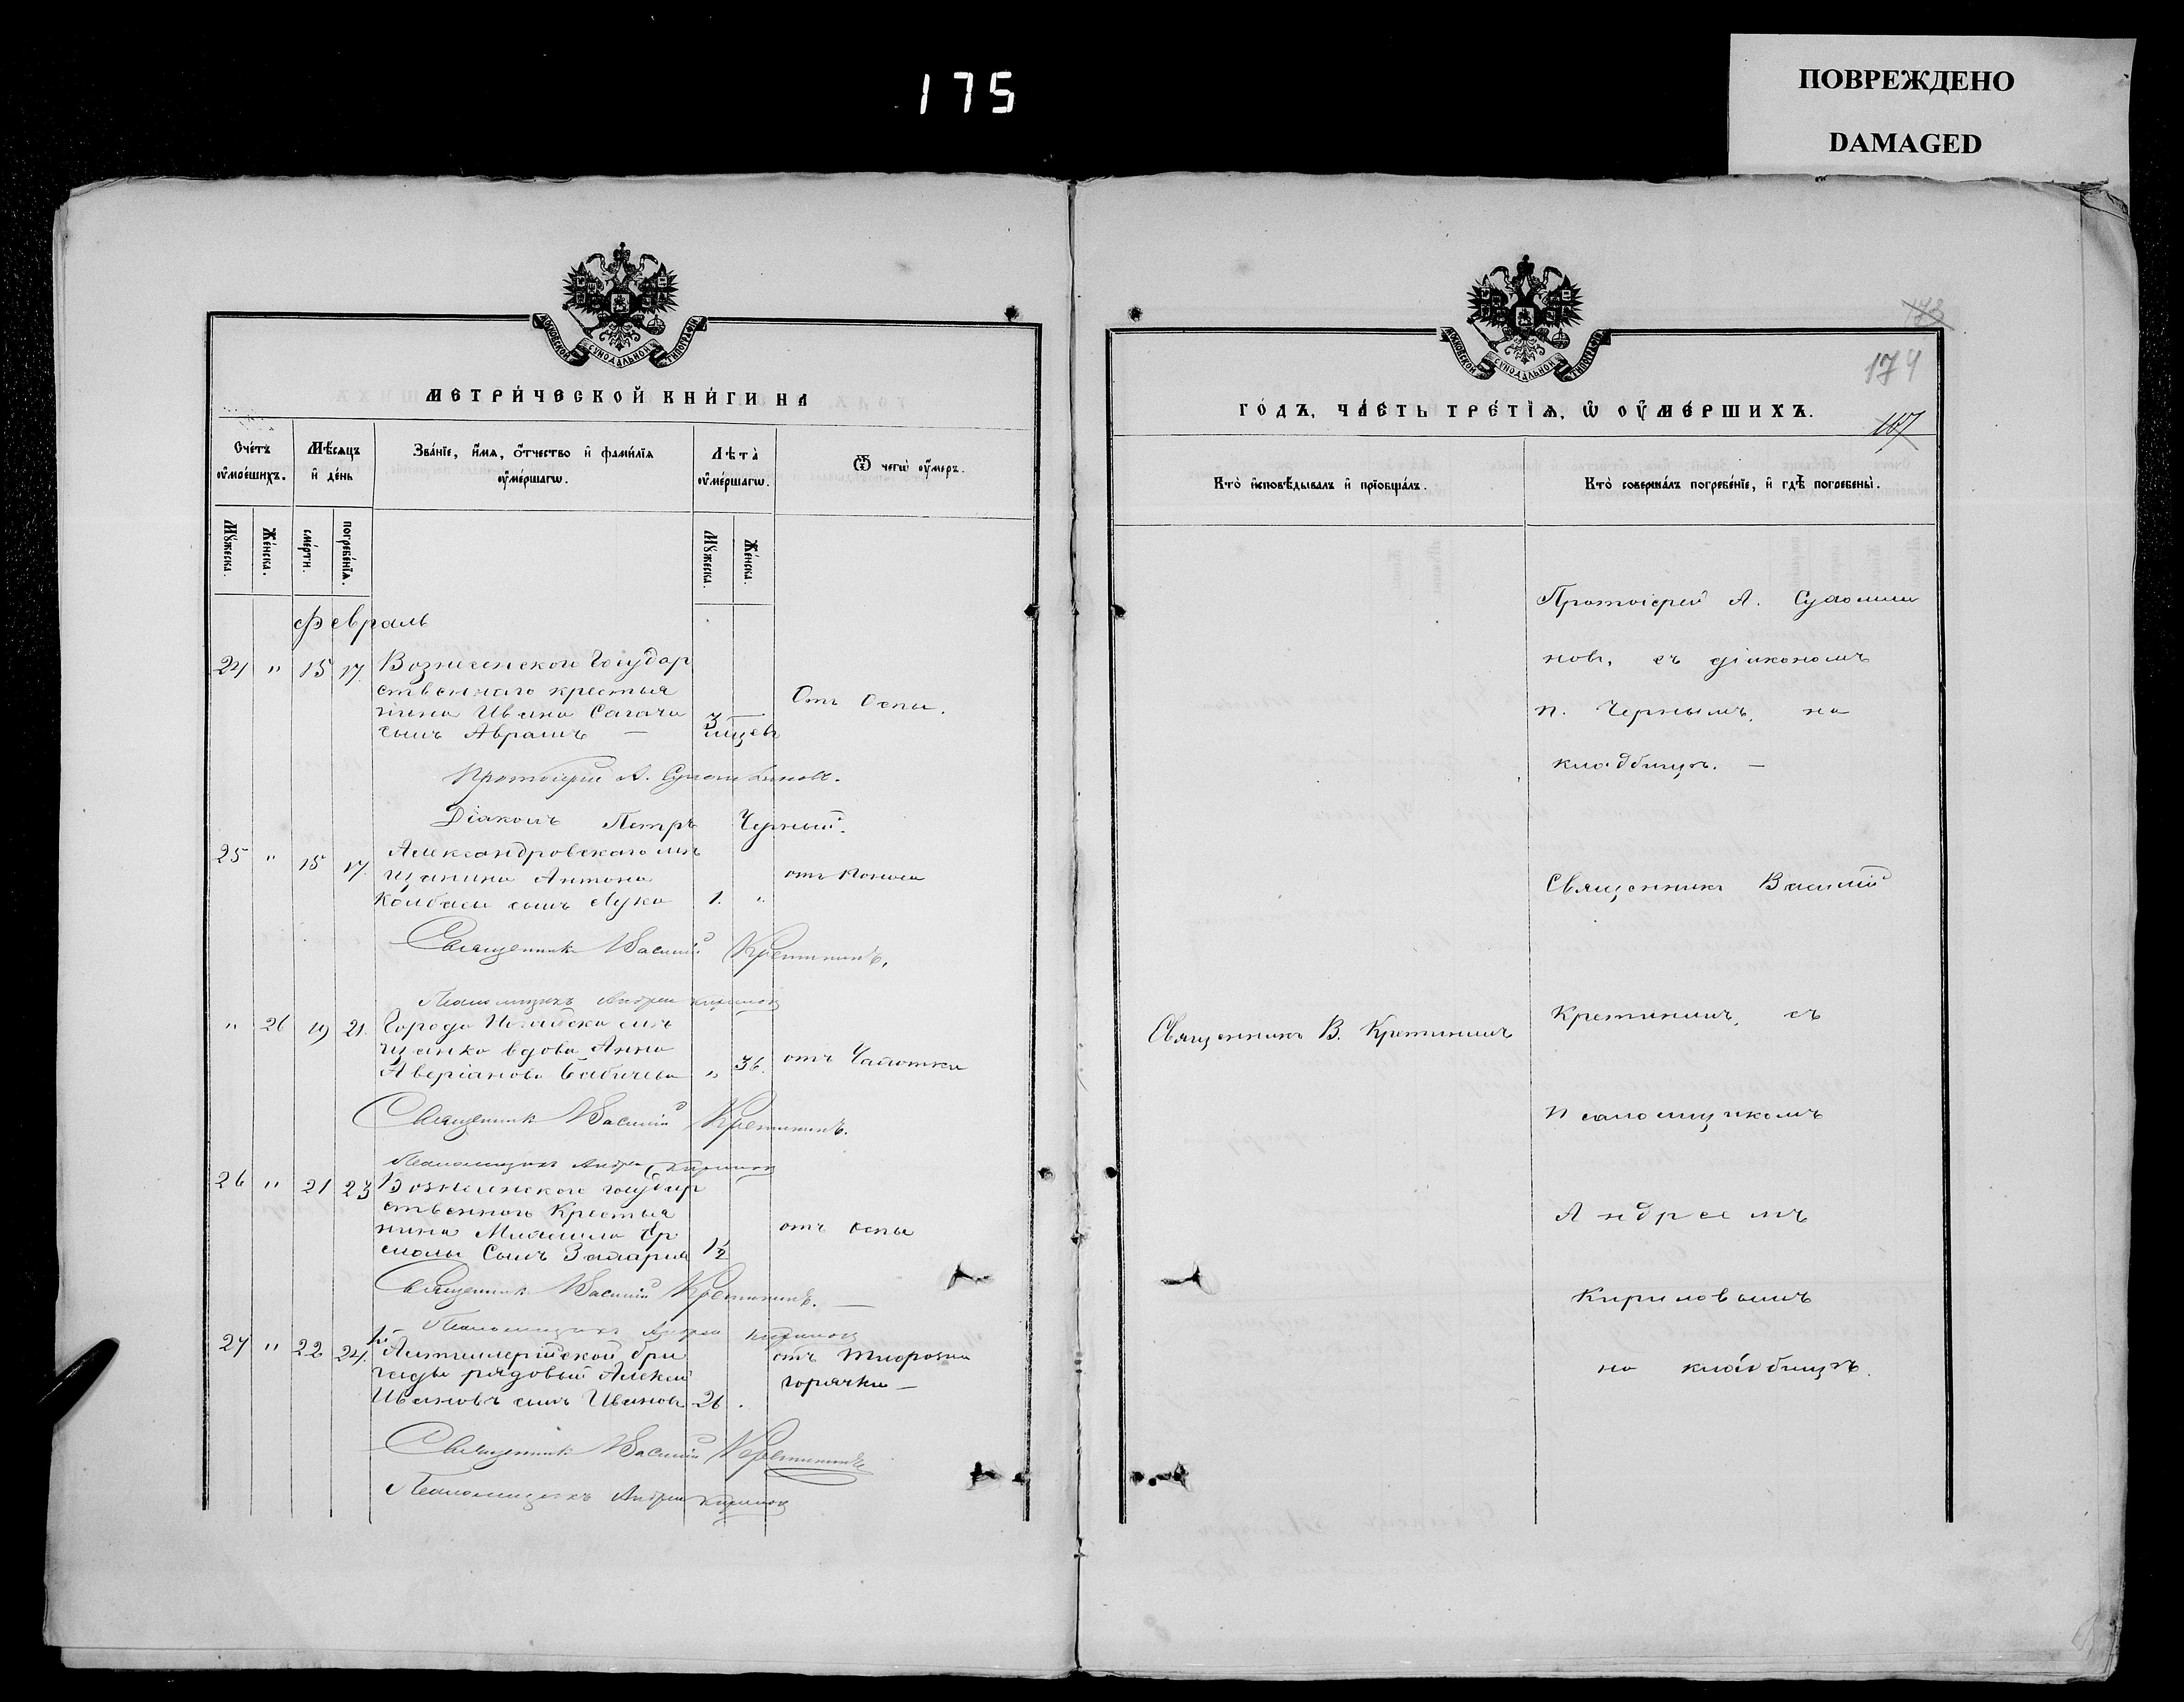 175
ПОВРЕЖДЕНО
DAMAGED
МОСКОВСКОЙ СѴНОДАЛЬНОЙ ТИПОГРАФІИ
МЕТРИ́ЧЕСКОЙ КНИ́ГИ НА
Сче́тъ ᲂу҆ме́ршихъ.
Мѣ́сяцъ и҆ де́нь
Зва́нїе, и҆́мѧ, ѻ҆́тчество и҆ фами́лїѧ ᲂу҆ме́ршагѡ.
Лѣ́та ᲂу҆ме́ршагѡ.
Ѿ чегѡ̀ ᲂу҆́меръ.
Мꙋ́жеска.
Же́нска.
сме́рти.
погребе́нїѧ.
Мꙋ́жеска.
Же́нска.
Февраль
24 " 15 17. Вознесенского Государ
ственнаго крестья
нина Ивана Сагача
сынъ Авраамъ — 3 мѣсец Отъ Оспы.
Протоіерей А.
Діаконъ Петръ Черный.
25 " 15 17. Александровскаго мѣ
щанина Антона
Колбасы сынъ Лука 1. " отъ Поноса
Священникъ Василій Кретининъ.
Псаломщикъ Андрей Кириловъ
" 26 19 21. Города мѣ
щанка вдова Анна
Аверіанова " 36. отъ Чахотки
Священникъ Василій Кретининъ.
Псаломщикъ Андрей Кириловъ
26 " 21 23 Вознесенского государ
ственного Крестья
нина Михаила
Сынъ Захарія 1½ отъ оспы
Священникъ Василій Кретининъ. —
Псаломщикъ Андрей Кириловъ
27 " 22 24. Артиллерійской бри
гады рядовый Алексей
Ивановъ сынъ Ивановъ 26 . отъ
горячки —
Священникъ Василій Кретининъ
Псаломщикъ Андрей Кириловъ
МОСКОВСКОЙ СѴНОДАЛЬНОЙ ТИПОГРАФІИ
173
174
107
ГО́ДЪ, ЧА́СТЬ ТРЕ́ТЇѦ, Ѡ҆ ᲂУ҆МЕ́РШИХЪ.
Кто̀ и҆сповѣ́дывалъ и҆ прїѡбща́лъ.
Кто̀ соверша́лъ погребе́нїе, и҆ гдѣ̀ погребены̀.
Протоіерей А.
съ діакономъ
п. Чернымъ, на
кладбищѣ. —
Священникъ Василій
Священникъ В. Кретининъ
Кретининъ, съ
псаломщикомъ
Андреемъ
Кириловымъ
на кладбищѣ.